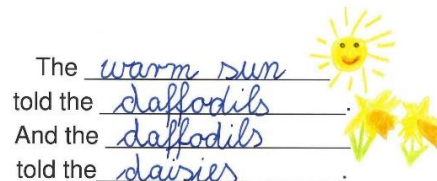 The warm sun
told the daffodils.
And the daffodils
told the daisies.